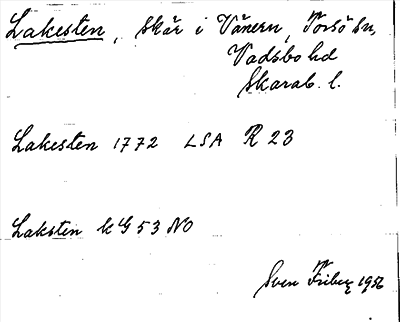 Lakesten, Skär i Vänern, Torsö sn,
Vadsbo hd
Skarab. l.
Lakesten 1772 LSA R 23
Laksten kG 53 NO
Sven Friberg 1956